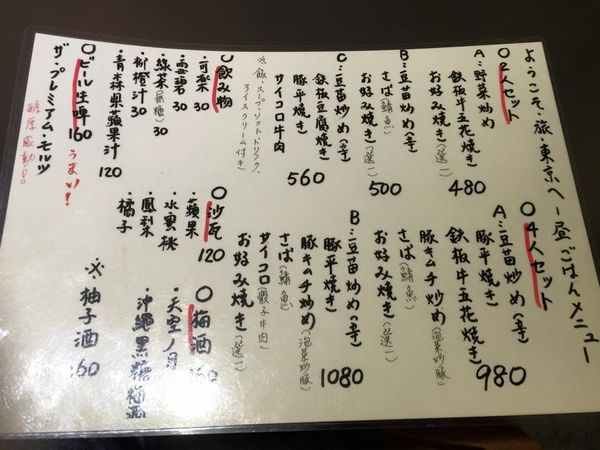 ようこそ、旅・東京へ ー昼ごはんメニュー
○2人セット
A:野菜炒め
鉄板牛五花焼き
お好み焼き(選一) 480
B:豆苗炒め(辛)
さば(鯖魚)
お好み焼き(選一) 500
C:豆苗炒め(辛)
鉄板豆腐焼き
豚平焼き
サイコロ牛肉 560
※飯、スープ、ソフトドリンク、アイスクリーム付き
○4人セット
A:豆苗炒め(辛)
豚平焼き
鉄板牛五花焼き 980
豚キムチ炒め(泡菜炒豚)
さば(鯖魚)
お好み焼き(選一)
B:豆苗炒め(辛)
豚平焼き 1080
豚キムチ炒め(泡菜炒豚)
さば(鯖魚)
サイコロ(骰子牛肉)
お好み焼き(選一)
○飲み物
・可楽 30
・雪碧 30
・綠茶(無糖) 30
・柳橙汁 30
・青森県蘋果汁 120
○ビール生啤 160 うまい!
ザ・プレミアム・モルツ
醇厚感動!!
○沙瓦 120
・蘋果
・水蜜桃
・鳳梨
・橘子
○梅酒 160
・天空ノ月
・沖縄黒糖梅酒
※柚子酒 160